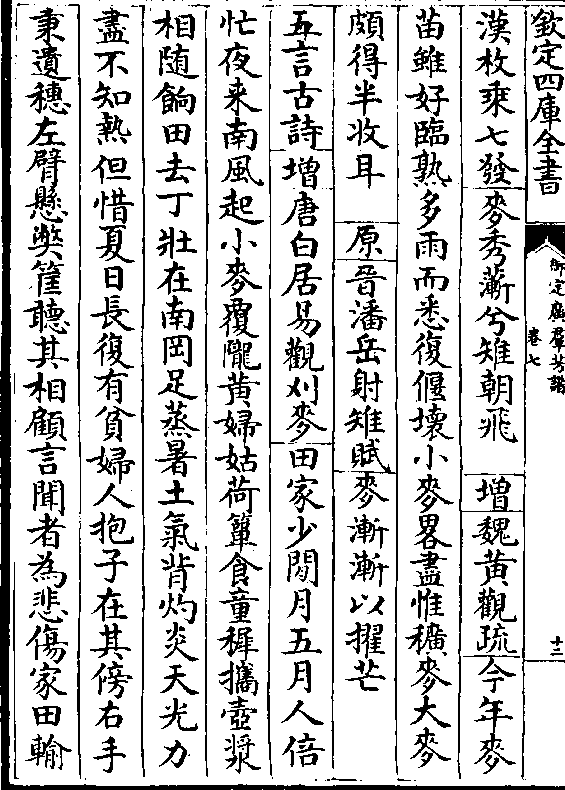 欽定四庫全書
御定廣羣芳譜
卷七
十二
漢枚乘七發麥秀蔪兮雉朝飛 增魏黃觀疏今年麥
苗雖好臨熟多雨而悉復偃壞小麥畧盡惟穬麥大麥
頗得半收耳 原晉潘岳射雉賦麥漸漸以擢芒
五言古詩增唐白居易觀刈麥田家少閒月五月人倍
忙夜来南風起小麥覆隴黃婦姑荷簞食童穉攜壺漿
相随餉田去丁壯在南岡足蒸暑土氣背灼炎天光力
盡不知熱但惜夏日長復有貧婦人抱子在其傍右手
秉遺穗左臂懸獘筐聽其相顧言聞者為悲傷家田輸